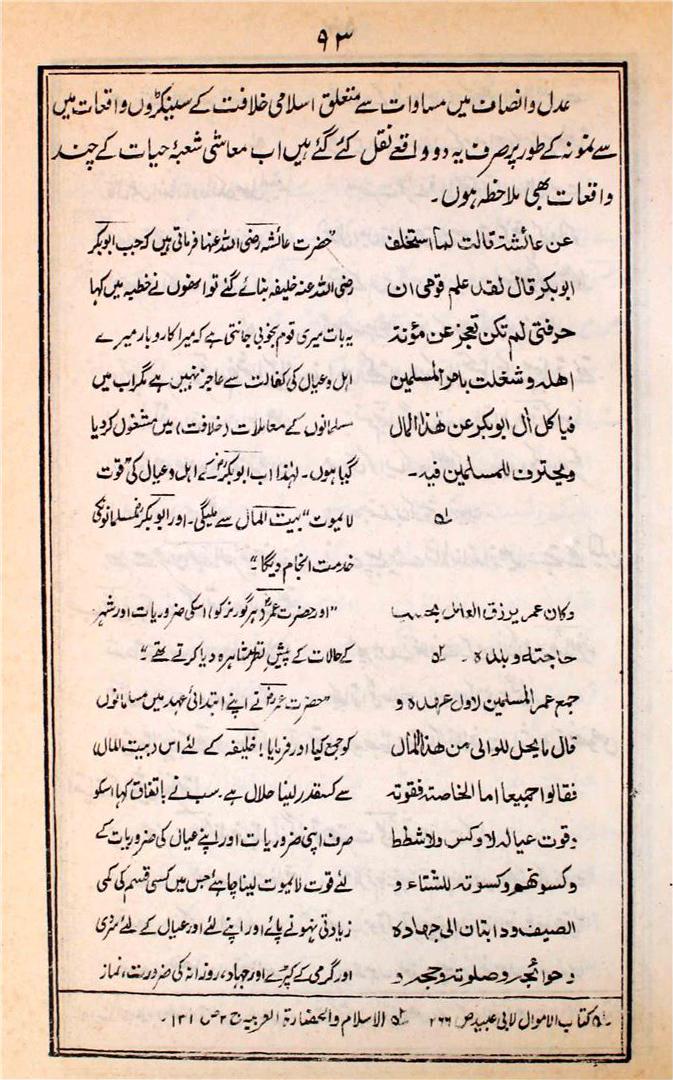 ۹۳
عدل و انصاف میں مساوات سے متعلق اسلامی خلافت کے سینکڑوں واقعات میں
سے نمونہ کے طور پر صرف یہ دو واقعے نقل کئے گئے ہیں اب معاشی شعبۂ حیات کے چند
واقعات بھی ملاحظہ ہوں۔
عن عائشۃ قالت لما استخلف
ابوبکر قال لقد علم قومی ان
حرفتی لم تکن تعجز عن مؤنۃ
اھلہ و شغلت بامر المسلمین
فیاکل اٰل ابوبکر عن ھٰذا المال
ویحترف للمسلمین فیہ۔
لہ
"حضرت عائشہ رضی اللہ عنہا فرماتی ہیں کہ جب ابوبکر
رضی اللہ عنہ خلیفہ بنائے گئے تو انھوں نے خطبہ میں کہا
یہ بات میری قوم بخوبی جانتی ہے کہ میرا کاروبار میرے
اہل وعیال کی کفالت سے عاجز نہیں ہے مگر اب میں
مسلمانوں کے معاملات (خلافت) میں مشغول کر دیا
گیا ہوں۔ لہٰذا اب ابوبکرؓ کے اہل وعیال کی "قوت
لایموت" بیت المال سے ملیگی۔ اور ابوبکرؓ مسلمانونکی
خدمت انجام دیگا۔"
وکان عمر یرزق العامل بحسب
حاجتہ و بلدہ۔ ۲ہ
"اور حضرت عمرؓ (ہر گورنر کو) اسکی ضروریات اور شہر
کے حالات کے پیش نظر مشاہرہ دیا کرتے تھے۔"
جمع عمر المسلمین لاول عہدہ و
قال ما یحل للوالی من ھذا المال
فقالوا جمیعا اما الخاصتہ فقوتہ
وقوت عیالہ لا وکس ولا شطط
وکسوتھم وکسوتہ للشتاء و
الصیف ودابتان الی جھادہ
وحوائجہ وصلوتہ وحجہ و
"حضرت عمرؓ نے اپنے ابتدائی عہد میں مسلمانوں
کو جمع کیا اور فرمایا! خلیفہ کے لئے اس (بیت المال)
سے کسقدر لینا حلال ہے۔ سب نے باتفاق کہا اسکو
صرف اپنی ضروریات اور اپنے عیال کی ضروریات کے
لئے قوت لایموت لینا چاہئے جس میں کسی قسم کی کمی
زیادتی نہونے پائے اور اپنے لئے اور عیال کے لئے سردی
اور گرمی کے کپڑے اور جہاد، روزانہ کی ضرورت، نماز
لہ کتاب الاموال لابی عبید ص ۲۶۶ ۲ہ الاسلام والحضارۃ العربیہ ج ۲ ص ۱۳۱۔